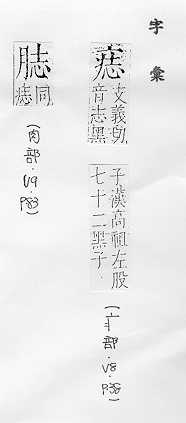 字彙
痣
支義切
音志黑
子漢高祖左股
七十二黑子
(疒部.V8.P38)
䏯
同
痣
(肉部.V9.P3)